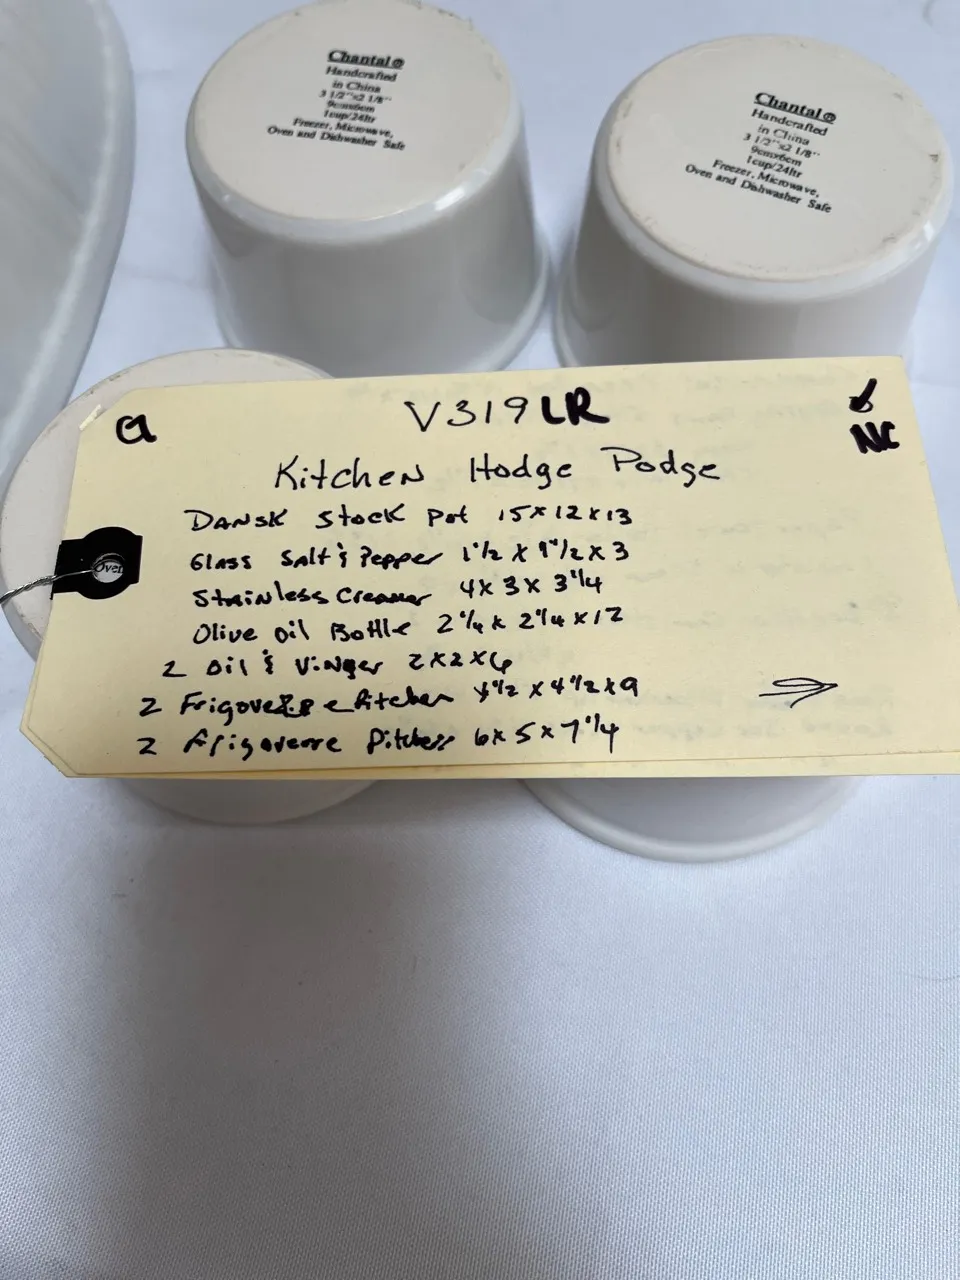 Chantal®
Handcrafted
in China
3 1/2"x2 1/8"
9cmx6cm
1cup/24ltr
Freezer, Microwave,
Oven and Dishwasher Safe
Chantal®
Handcrafted
in China
3 1/2"x2 1/8"
9cmx6cm
1cup/24ltr
Freezer, Microwave,
Oven and Dishwasher Safe
a V319LR
NC
Kitchen Hodge Podge
DANSK Stock Pot 15x12x13
Glass Salt & Pepper 1 1/2 x 1 1/2 x 3
Stainless Creamer 4x3x3 1/4
Olive Oil Bottle 2 1/4 x 2 1/4 x 12
Oven
2 Oil & Vinger 2x2x6
2 Pitcher 4 1/2 x 4 1/2 x 9
2 Frigoverre Pitchers 6x5x7 1/4